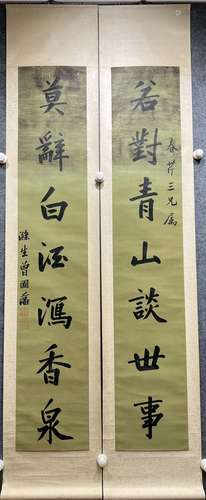 若對青山談世事
春芹三兄属
莫辭白酒瀉香泉
滌生曾國藩